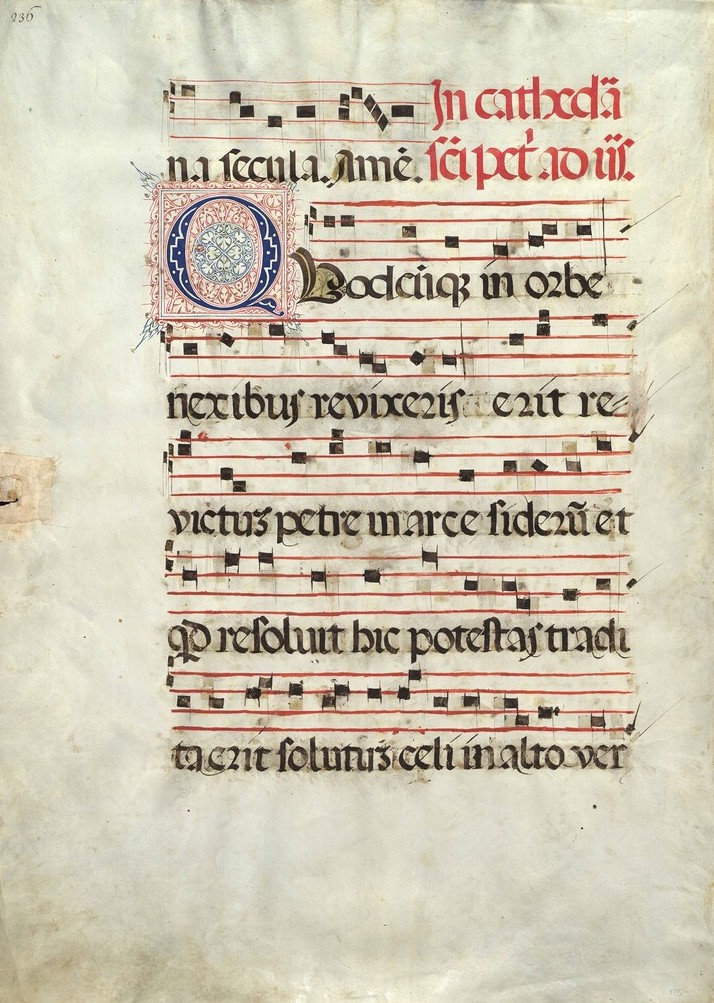 236
In cathedã
na secula. Amẽ. sci pet' ad iiś.
Quodcũqz in orbe
nexibus revixeris erit re-
victus petre in arce siderũ et
qd resoluit hic potestas tradi
ta erit solutus celi in alto ver